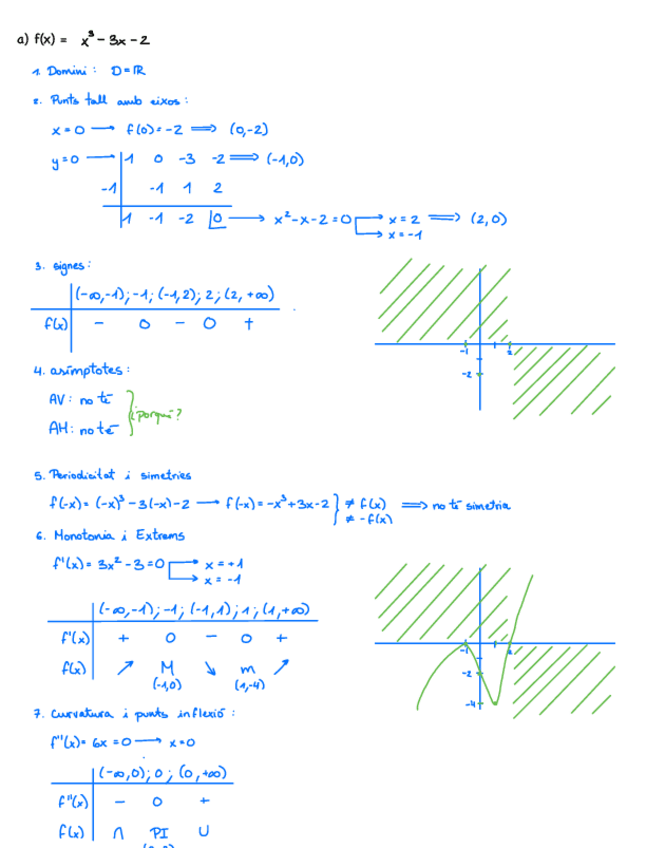 a) f(x) = x³ - 3x - 2
1. Domini: D = ℝ
2. Punts tall amb eixos:
x = 0 → f(0) = -2 ⟹ (0,-2)
y = 0 → 1 0 -3 -2 ⟹ (-1,0)
-1 -1 1 2
1 -1 -2 0 → x² - x - 2 = 0 → x = 2 ⟹ (2,0)
→ x = -1
3. signes:
(-∞,-1); -1; (-1,2); 2; (2,+∞)
f(x) - 0 - 0 +
-1 2
-2
4. asímptotes:
AV: no té
AH: no té
¿porqué?
5. Periodicitat i simetries
f(-x) = (-x)³ - 3(-x) - 2 → f(-x) = -x³ + 3x - 2 } ≠ f(x) ⟹ no té simetria
≠ -f(x)
6. Monotonia i Extrems
f'(x) = 3x² - 3 = 0 → x = +1
→ x = -1
(-∞,-1); -1; (-1,1); 1; (1,+∞)
f'(x) + 0 - 0 +
f(x) ↗ M ↘ m ↗
(-1,0) (1,-4)
-1 2
-2
-4
7. Curvatura i punts inflexió:
f''(x) = 6x = 0 → x = 0
(-∞,0); 0; (0,+∞)
f''(x) - 0 +
f(x) ∩ PI ∪